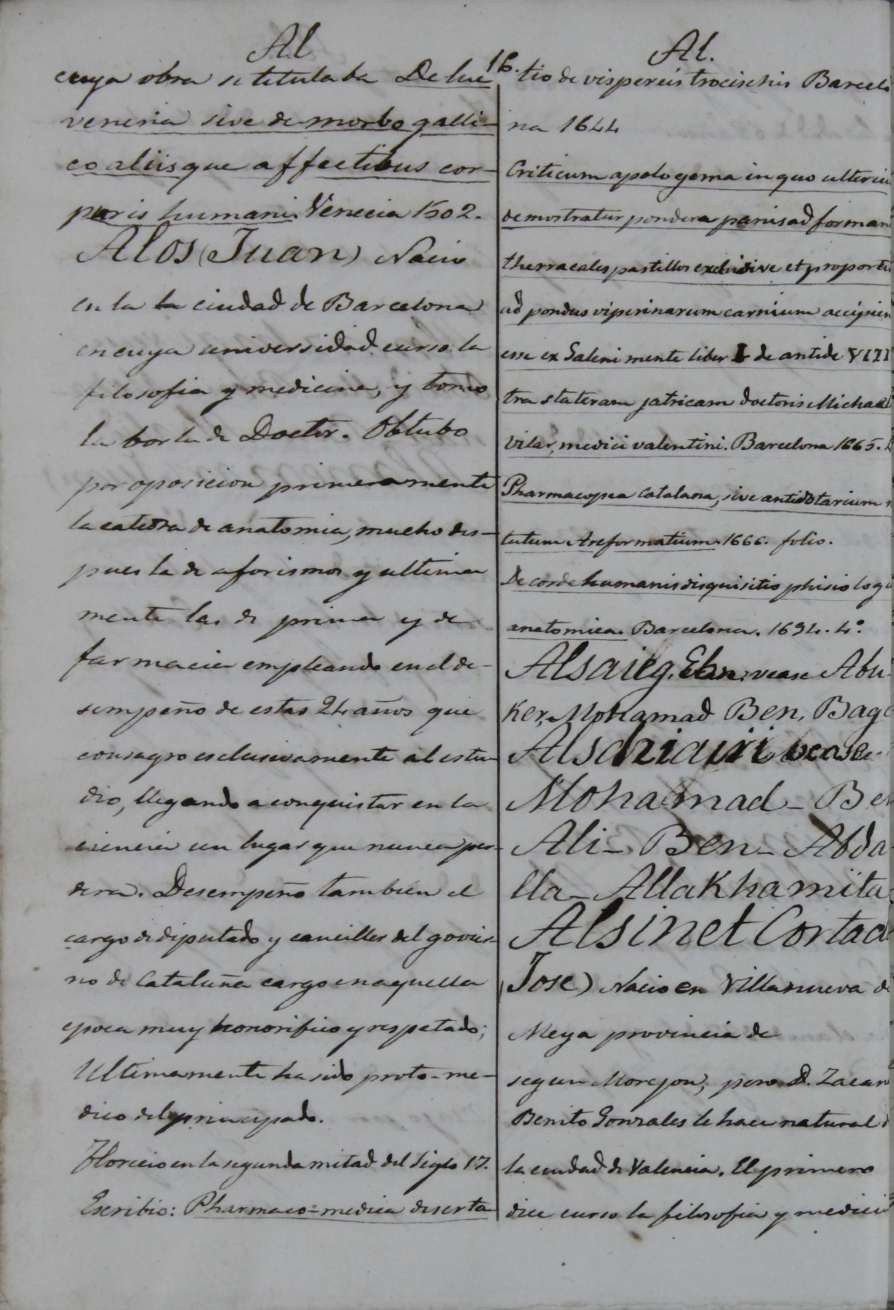 Al
16.
Al.
cuya obra se titulaba De lue
veneria sive de morbo galli-
co aliisque affectibus cor-
poris humani. Venecia 1502.
Alos (Juan) Nacio
en la la ciudad de Barcelona
en cuya universidad curso la
filosofia y medicina, y tomo
la borla de Doctor. Obtubo
por oposicion primeramente
la catedra de anatomia, mucho des-
pues la de aforismos y ultima
mente las de prima y de
farmacia empleando en el de-
sempeño de estas 24 años que
consagro esclusivamente al estu-
dio, llegando a conquistar en la
ciencia un lugar que nunca per-
dera. Desempeño tambien el
cargo de diputado y canciller del govier-
no de Cataluña cargo en aquella
epoca muy honorifico y respetado;
Ultimamente ha sido proto-me-
dico del principado.
Florecio en la segunda mitad del siglo 17.
Escribio: Pharmaco-medica diserta
tio de vispereis trocischis Barcelo
na 1644
Criticum apologema in quo ulterius
demostratur pondera panis ad forman
therracales pastillos exclusive et proporti
ad pondus viperinarum carnium accipien
esse ex Galeni mente liber 1 de antide VIII
tra stateram jatricam doctoris Michael
Vilar, medici valentini. Barcelona 1665.
Pharmacopea Catalana, sive antidotarium
tutum & reformatium. 1666. folio.
De corde humanis disquisitio phisiologi
anatomica. Barcelona. 1694. 4º
Alsaieg. Ebn. vease Abu
Ker, Mohamad Ben, Bag
Alsdziairi vease
Mohamad - Ben
Ali - Ben - Abda
lla - Allakhamita
Alsinet Cortad
(Jose) Nacio en Villanueva de
Meya provincia de
segun Morejon; pero D. Zacar
Benito Gonzales le hace natural d
la ciudad de Valencia. El primero
dice curso la filosofia y medici